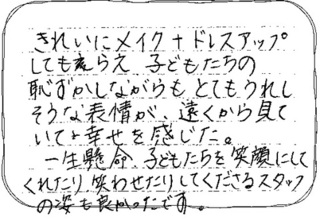 きれいにメイク＋ドレスアップ
してもらえ 子どもたちの
恥ずかしながらも とてもうれし
そうな表情が、遠くから見て
いても幸せを感じた。
一生懸命 子どもたちを笑顔にして
くれたり 笑わせたりしてくださるスタッフ
の姿も良かったです。